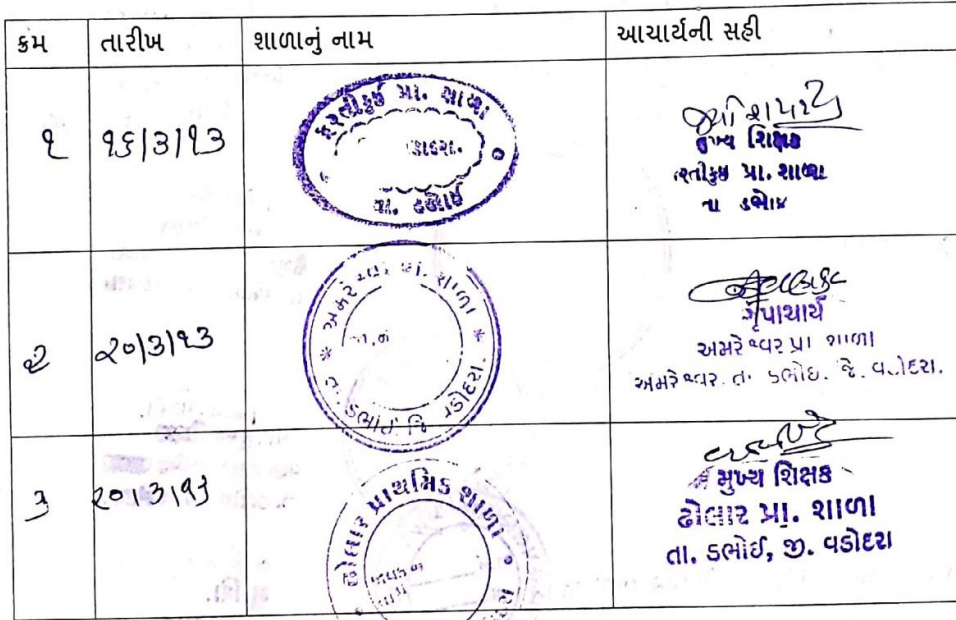 ક્રમ તારીખ શાળાનું નામ આચાર્યની સહી
૧ ૧૬/૩/૧૩ પ્રા. શાળા
તા. ડભોઈ
મુખ્ય શિક્ષક
પ્રા. શાળા
તા ડભોઈ
૨ ૨૦/૩/૧૩ અમરેશ્વર પ્રા. શાળા
ડભોઈ જિ વડોદરા.
ઉપાચાર્ય
અમરેશ્વર પ્રા શાળા
અમરેશ્વર. તા ડભોઇ. જે. વડોદરા.
૩ ૨૦/૩/૧૩ ઢોલાર પ્રાથમિક શાળા
મુખ્ય શિક્ષક
ઢોલાર પ્રા. શાળા
તા. ડભોઈ, જી. વડોદરા